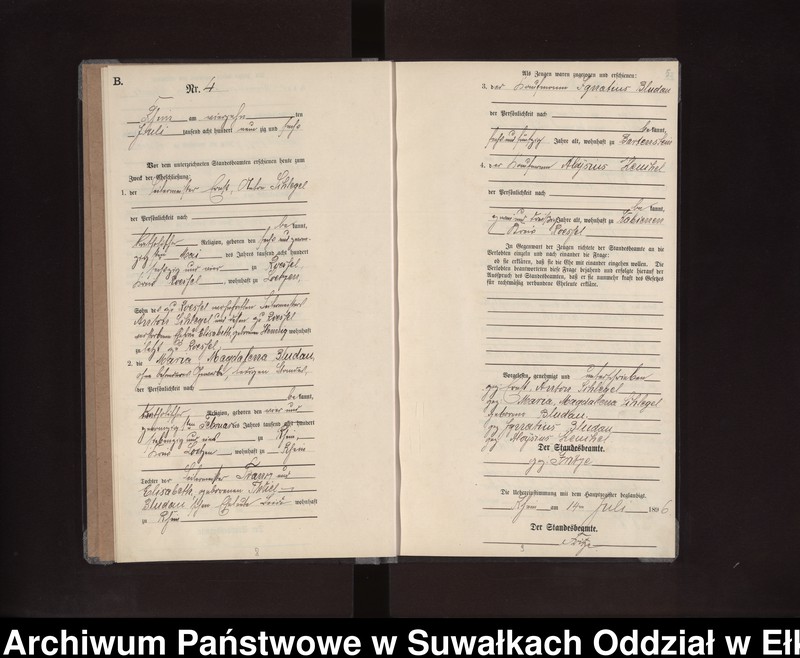 B.
Nr. 4
Rhein am vierzehn ten
Juli tausend acht hundert neun zig und sechs
Vor dem unterzeichneten Standesbeamten erschienen heute zum
Zweck der Eheschließung:
1. der Ernst, Anton Schlegel
der Persönlichkeit nach
be kannt,
katholischer Religion, geboren den sechs und zwan-
zig sten Mai des Jahres tausend acht hundert
sechszig und vier zu Roessel,
Kreis Roessel, wohnhaft zu Loetzen,
Sohn des zu Roessel
Anton Schlegel und zu Roessel
verstorbenen Elisabeth, geborenen wohnhaft
zu letzt zu Roessel,
2. die Maria, Magdalena Bludau,
ohne besonderes Gewerbe,
der Persönlichkeit nach
be kannt,
katholischer Religion, geboren den vier und
zwanzig sten Februar des Jahres tausend acht hundert
siebenzig und zu Rhein,
Kreis Loetzen, wohnhaft zu Rhein
Tochter der Franz und
Elisabeth, geborenen
Bludau'schen Eheleute beide wohnhaft
zu Rhein
8
Als Zeugen waren zugezogen und erschienen:
3. der Kaufmann Ignatius Bludau
der Persönlichkeit nach
be kannt,
sechs und fünfzig Jahre alt, wohnhaft zu Bartenstein
4. der Kaufmann Aloysius
der Persönlichkeit nach
be kannt,
zwei und dreißig Jahre alt, wohnhaft zu
Kreis Roessel
In Gegenwart der Zeugen richtete der Standesbeamte an die
Verlobten einzeln und nach einander die Frage:
ob sie erklären, daß sie die Ehe mit einander eingehen wollen. Die
Verlobten beantworteten diese Frage bejahend und erfolgte hierauf der
Ausspruch des Standesbeamten, daß er sie nunmehr kraft des Gesetzes
für rechtmäßig verbundene Eheleute erkläre.
Vorgelesen, genehmigt und unterschrieben
gez. Ernst Anton Schlegel
gez. Maria, Magdalena Schlegel
geborene Bludau
gez. Ignatius Bludau
gez. Aloysius
Der Standesbeamte.
gez.
Die Uebereinstimmung mit dem Hauptregister beglaubigt.
Rhein am 14ten Juli 1896
Der Standesbeamte.
Archiwum Państwowe w Suwałkach Oddział w Ełk